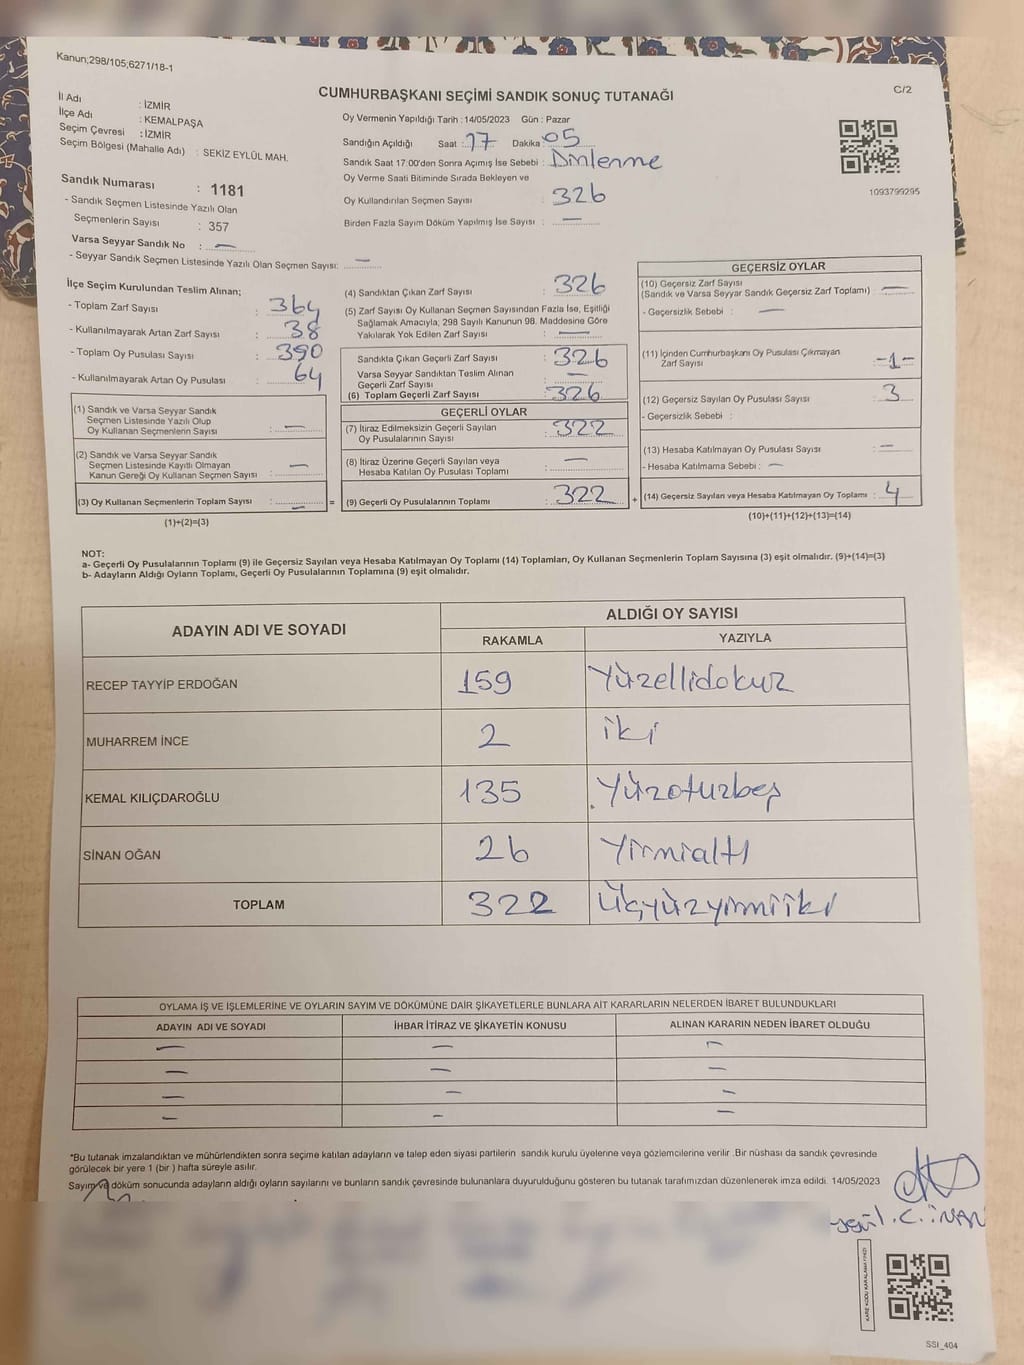 Kanun;298/105;6271/18-1
C/2
CUMHURBAŞKANI SEÇİMİ SANDIK SONUÇ TUTANAĞI
İl Adı : İZMİR
İlçe Adı : KEMALPAŞA
Seçim Çevresi : İZMİR
Seçim Bölgesi (Mahalle Adı) : SEKİZ EYLÜL MAH.
Sandık Numarası : 1181
- Sandık Seçmen Listesinde Yazılı Olan
Seçmenlerin Sayısı : 357
Varsa Seyyar Sandık No : —
- Seyyar Sandık Seçmen Listesinde Yazılı Olan Seçmen Sayısı: —
Oy Vermenin Yapıldığı Tarih : 14/05/2023 Gün : Pazar
Sandığın Açıldığı Saat : 17 Dakika : 05
Sandık Saat 17.00'den Sonra Açımış İse Sebebi : Dinlenme
Oy Verme Saati Bitiminde Sırada Bekleyen ve
Oy Kullandırılan Seçmen Sayısı : 326
Birden Fazla Sayım Döküm Yapılmış İse Sayısı : —
1093799295
İlçe Seçim Kurulundan Teslim Alınan;
- Toplam Zarf Sayısı : 364
- Kullanılmayarak Artan Zarf Sayısı : 38
- Toplam Oy Pusulası Sayısı : 390
- Kullanılmayarak Artan Oy Pusulası : 64
(1) Sandık ve Varsa Seyyar Sandık
Seçmen Listesinde Yazılı Olup
Oy Kullanan Seçmenlerin Sayısı : —
(2) Sandık ve Varsa Seyyar Sandık
Seçmen Listesinde Kayıtlı Olmayan
Kanun Gereği Oy Kullanan Seçmen Sayısı : —
(3) Oy Kullanan Seçmenlerin Toplam Sayısı : — =
(1)+(2)=(3)
(4) Sandıktan Çıkan Zarf Sayısı : 326
(5) Zarf Sayısı Oy Kullanan Seçmen Sayısından Fazla İse, Eşitliği
Sağlamak Amacıyla; 298 Sayılı Kanunun 98. Maddesine Göre
Yakılarak Yok Edilen Zarf Sayısı : —
Sandıkta Çıkan Geçerli Zarf Sayısı : 326
Varsa Seyyar Sandıktan Teslim Alınan
Geçerli Zarf Sayısı : —
(6) Toplam Geçerli Zarf Sayısı : 326
GEÇERLİ OYLAR
(7) İtiraz Edilmeksizin Geçerli Sayılan
Oy Pusulalarının Sayısı : 322
(8) İtiraz Üzerine Geçerli Sayılan veya
Hesaba Katılan Oy Pusulası Toplamı : —
(9) Geçerli Oy Pusulalarının Toplamı : 322 +
GEÇERSİZ OYLAR
(10) Geçersiz Zarf Sayısı
(Sandık ve Varsa Seyyar Sandık Geçersiz Zarf Toplamı) : —
- Geçersizlik Sebebi : —
(11) İçinden Cumhurbaşkanı Oy Pusulası Çıkmayan
Zarf Sayısı : -1-
(12) Geçersiz Sayılan Oy Pusulası Sayısı : 3
- Geçersizlik Sebebi :
(13) Hesaba Katılmayan Oy Pusulası Sayısı : —
- Hesaba Katılmama Sebebi : —
(14) Geçersiz Sayılan veya Hesaba Katılmayan Oy Toplamı : 4
(10)+(11)+(12)+(13)=(14)
NOT:
a- Geçerli Oy Pusulalarının Toplamı (9) ile Geçersiz Sayılan veya Hesaba Katılmayan Oy Toplamı (14) Toplamları, Oy Kullanan Seçmenlerin Toplam Sayısına (3) eşit olmalıdır. (9)+(14)=(3)
b- Adayların Aldığı Oyların Toplamı, Geçerli Oy Pusulalarının Toplamına (9) eşit olmalıdır.
ADAYIN ADI VE SOYADI ALDIĞI OY SAYISI
RAKAMLA YAZIYLA
RECEP TAYYİP ERDOĞAN 159 Yüzellidokuz
MUHARREM İNCE 2 iki
KEMAL KILIÇDAROĞLU 135 Yüzotuzbeş
SİNAN OĞAN 26 Yirmialtı
TOPLAM 322 Üçyüzyirmiiki
OYLAMA İŞ VE İŞLEMLERİNE VE OYLARIN SAYIM VE DÖKÜMÜNE DAİR ŞİKAYETLERLE BUNLARA AİT KARARLARIN NELERDEN İBARET BULUNDUKLARI
ADAYIN ADI VE SOYADI İHBAR İTİRAZ VE ŞİKAYETİN KONUSU ALINAN KARARIN NEDEN İBARET OLDUĞU
— — —
— — —
— — —
— — —
*Bu tutanak imzalandıktan ve mühürlendikten sonra seçime katılan adayların ve talep eden siyasi partilerin sandık kurulu üyelerine veya gözlemcilerine verilir .Bir nüshası da sandık çevresinde
görülecek bir yere 1 (bir ) hafta süreyle asılır.
Sayım ve döküm sonucunda adayların aldığı oyların sayılarını ve bunların sandık çevresinde bulunanlara duyurulduğunu gösteren bu tutanak tarafımızdan düzenlenerek imza edildi. 14/05/2023
C. İNAN
SSI_404